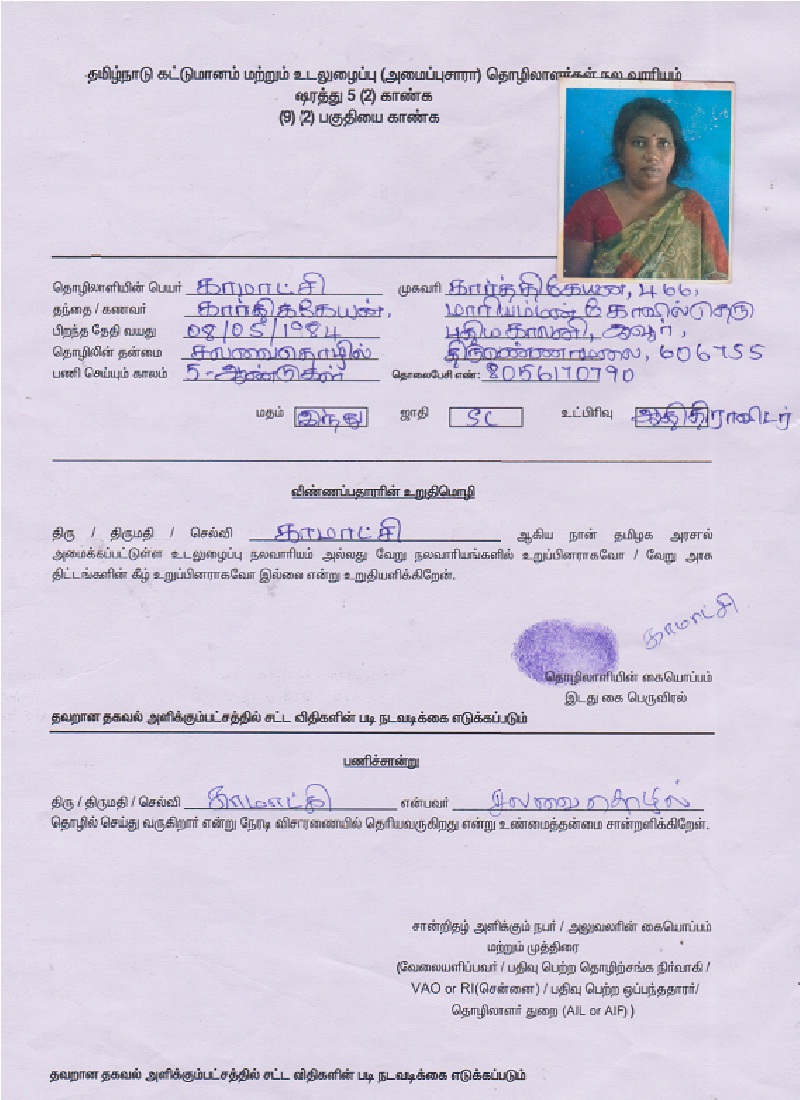 தமிழ்நாடு கட்டுமானம் மற்றும் உடலுழைப்பு (அமைப்புசாரா) தொழிலாளர்கள் நல வாரியம்
ஷரத்து 5 (2) காண்க
(9) (2) பகுதியை காண்க
தொழிலாளியின் பெயர் காமாட்சி முகவரி கார்த்திகேயன், 466,
தந்தை / கணவர் கார்திகேயன், மாரியம்மன் கோவில்தெரு
பிறந்த தேதி வயது 08/05/1984 காலனி, ஆவூர்,
தொழிலின் தன்மை சலவைதொழில் திருவண்ணாமலை, 606755
பணி செய்யும் காலம் 5-ஆண்டுகள் தொலைபேசி எண்: 8056170790
மதம் இந்து ஜாதி SC உட்பிரிவு ஆதிதிராவிடர்
விண்ணப்பதாரரின் உறுதிமொழி
திரு / திருமதி / செல்வி காமாட்சி ஆகிய நான் தமிழக அரசால்
அமைக்கப்பட்டுள்ள உடலுழைப்பு நலவாரியம் அல்லது வேறு நலவாரியங்களில் உறுப்பினராகவோ / வேறு அரசு
திட்டங்களின் கீழ் உறுப்பினராகவோ இல்லை என்று உறுதியளிக்கிறேன்.
காமாட்சி
தொழிலாளியின் கையொப்பம்
இடது கை பெருவிரல்
தவறான தகவல் அளிக்கும்பட்சத்தில் சட்ட விதிகளின் படி நடவடிக்கை எடுக்கப்படும்
பணிச்சான்று
திரு / திருமதி / செல்வி காமாட்சி என்பவர் சலவைதொழில்
தொழில் செய்து வருகிறார் என்று நேரடி விசாரணையில் தெரியவருகிறது என்று உண்மைத்தன்மை சான்றளிக்கிறேன்.
சான்றிதழ் அளிக்கும் நபர் / அலுவலரின் கையொப்பம்
மற்றும் முத்திரை
(வேலையளிப்பவர் / பதிவு பெற்ற தொழிற்சங்க நிர்வாகி /
VAO or RI(சென்னை) / பதிவு பெற்ற ஒப்பந்ததாரர்/
தொழிலாளர் துறை (AIL or AIF) )
தவறான தகவல் அளிக்கும்பட்சத்தில் சட்ட விதிகளின் படி நடவடிக்கை எடுக்கப்படும்